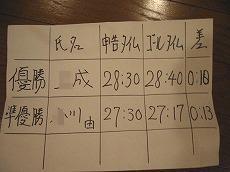 氏名 申告タイム ゴールタイム 差
優勝 成 28:30 28:40 0:10
準優勝 川 由 27:30 27:17 0:13